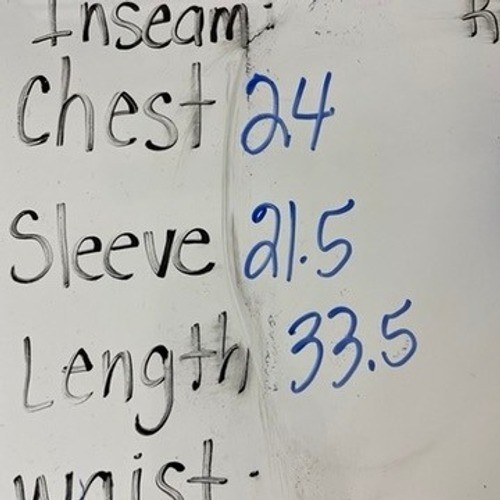 Inseam:
Chest 24
Sleeve 21.5
Length 33.5
waist: